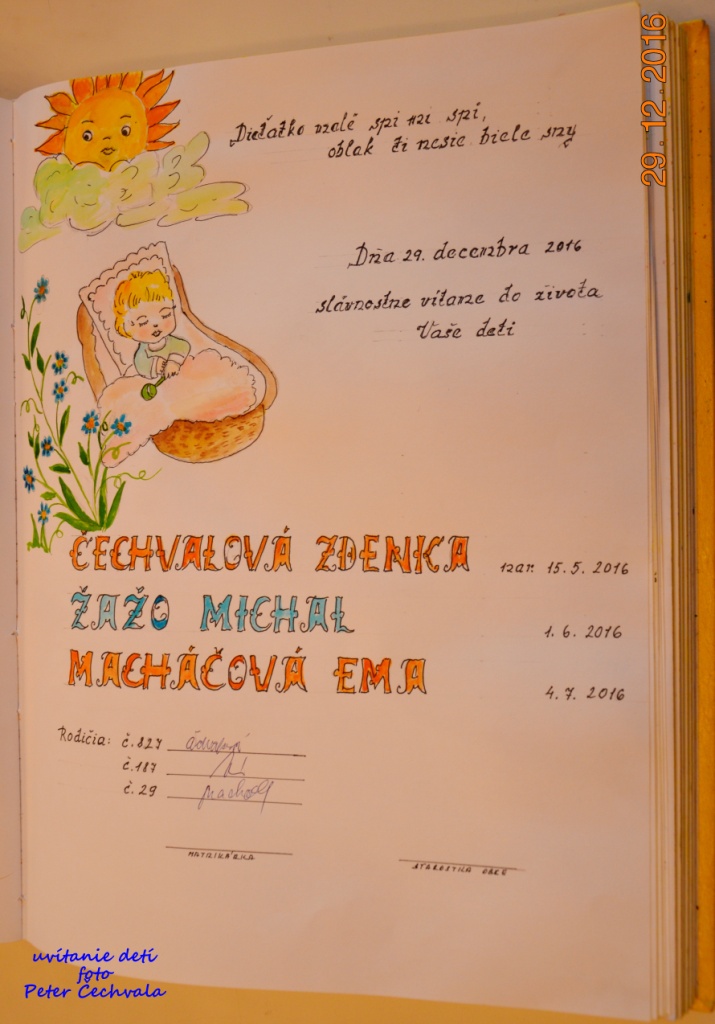 29.12.2016
Dieťatko malé spi mi spí,
oblak ti nesie biele sny
Dňa 29. decembra 2016
slávnostne vítame do života
Vaše deti
ČECHVALOVÁ ZDENKA nar. 15.5.2016
ŽAŽO MICHAL 1.6.2016
MACHÁČOVÁ EMA 4.7.2016
Rodičia: č.827
č.187
č.29
MATRIKÁRKA
STAROSTKA OBCE
uvítanie detí
foto
Peter Čechvala